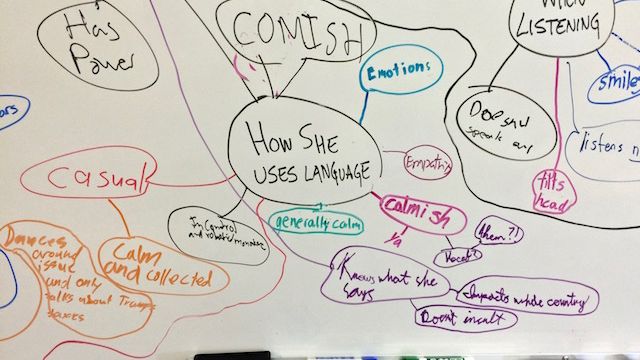 Has
Power
COMISH
Emotions
HOW SHE
USES LANGUAGE
Empathy
WHEN
LISTENING
smile
Doesn't
speak
listens
tilts
head
casual
In control
and
generally calm
calmish
Ahem?!
Dances
around
issue
and only
talks about
Calm
and collected
Knows what she
says
Impacts whole country
Doesn't insult